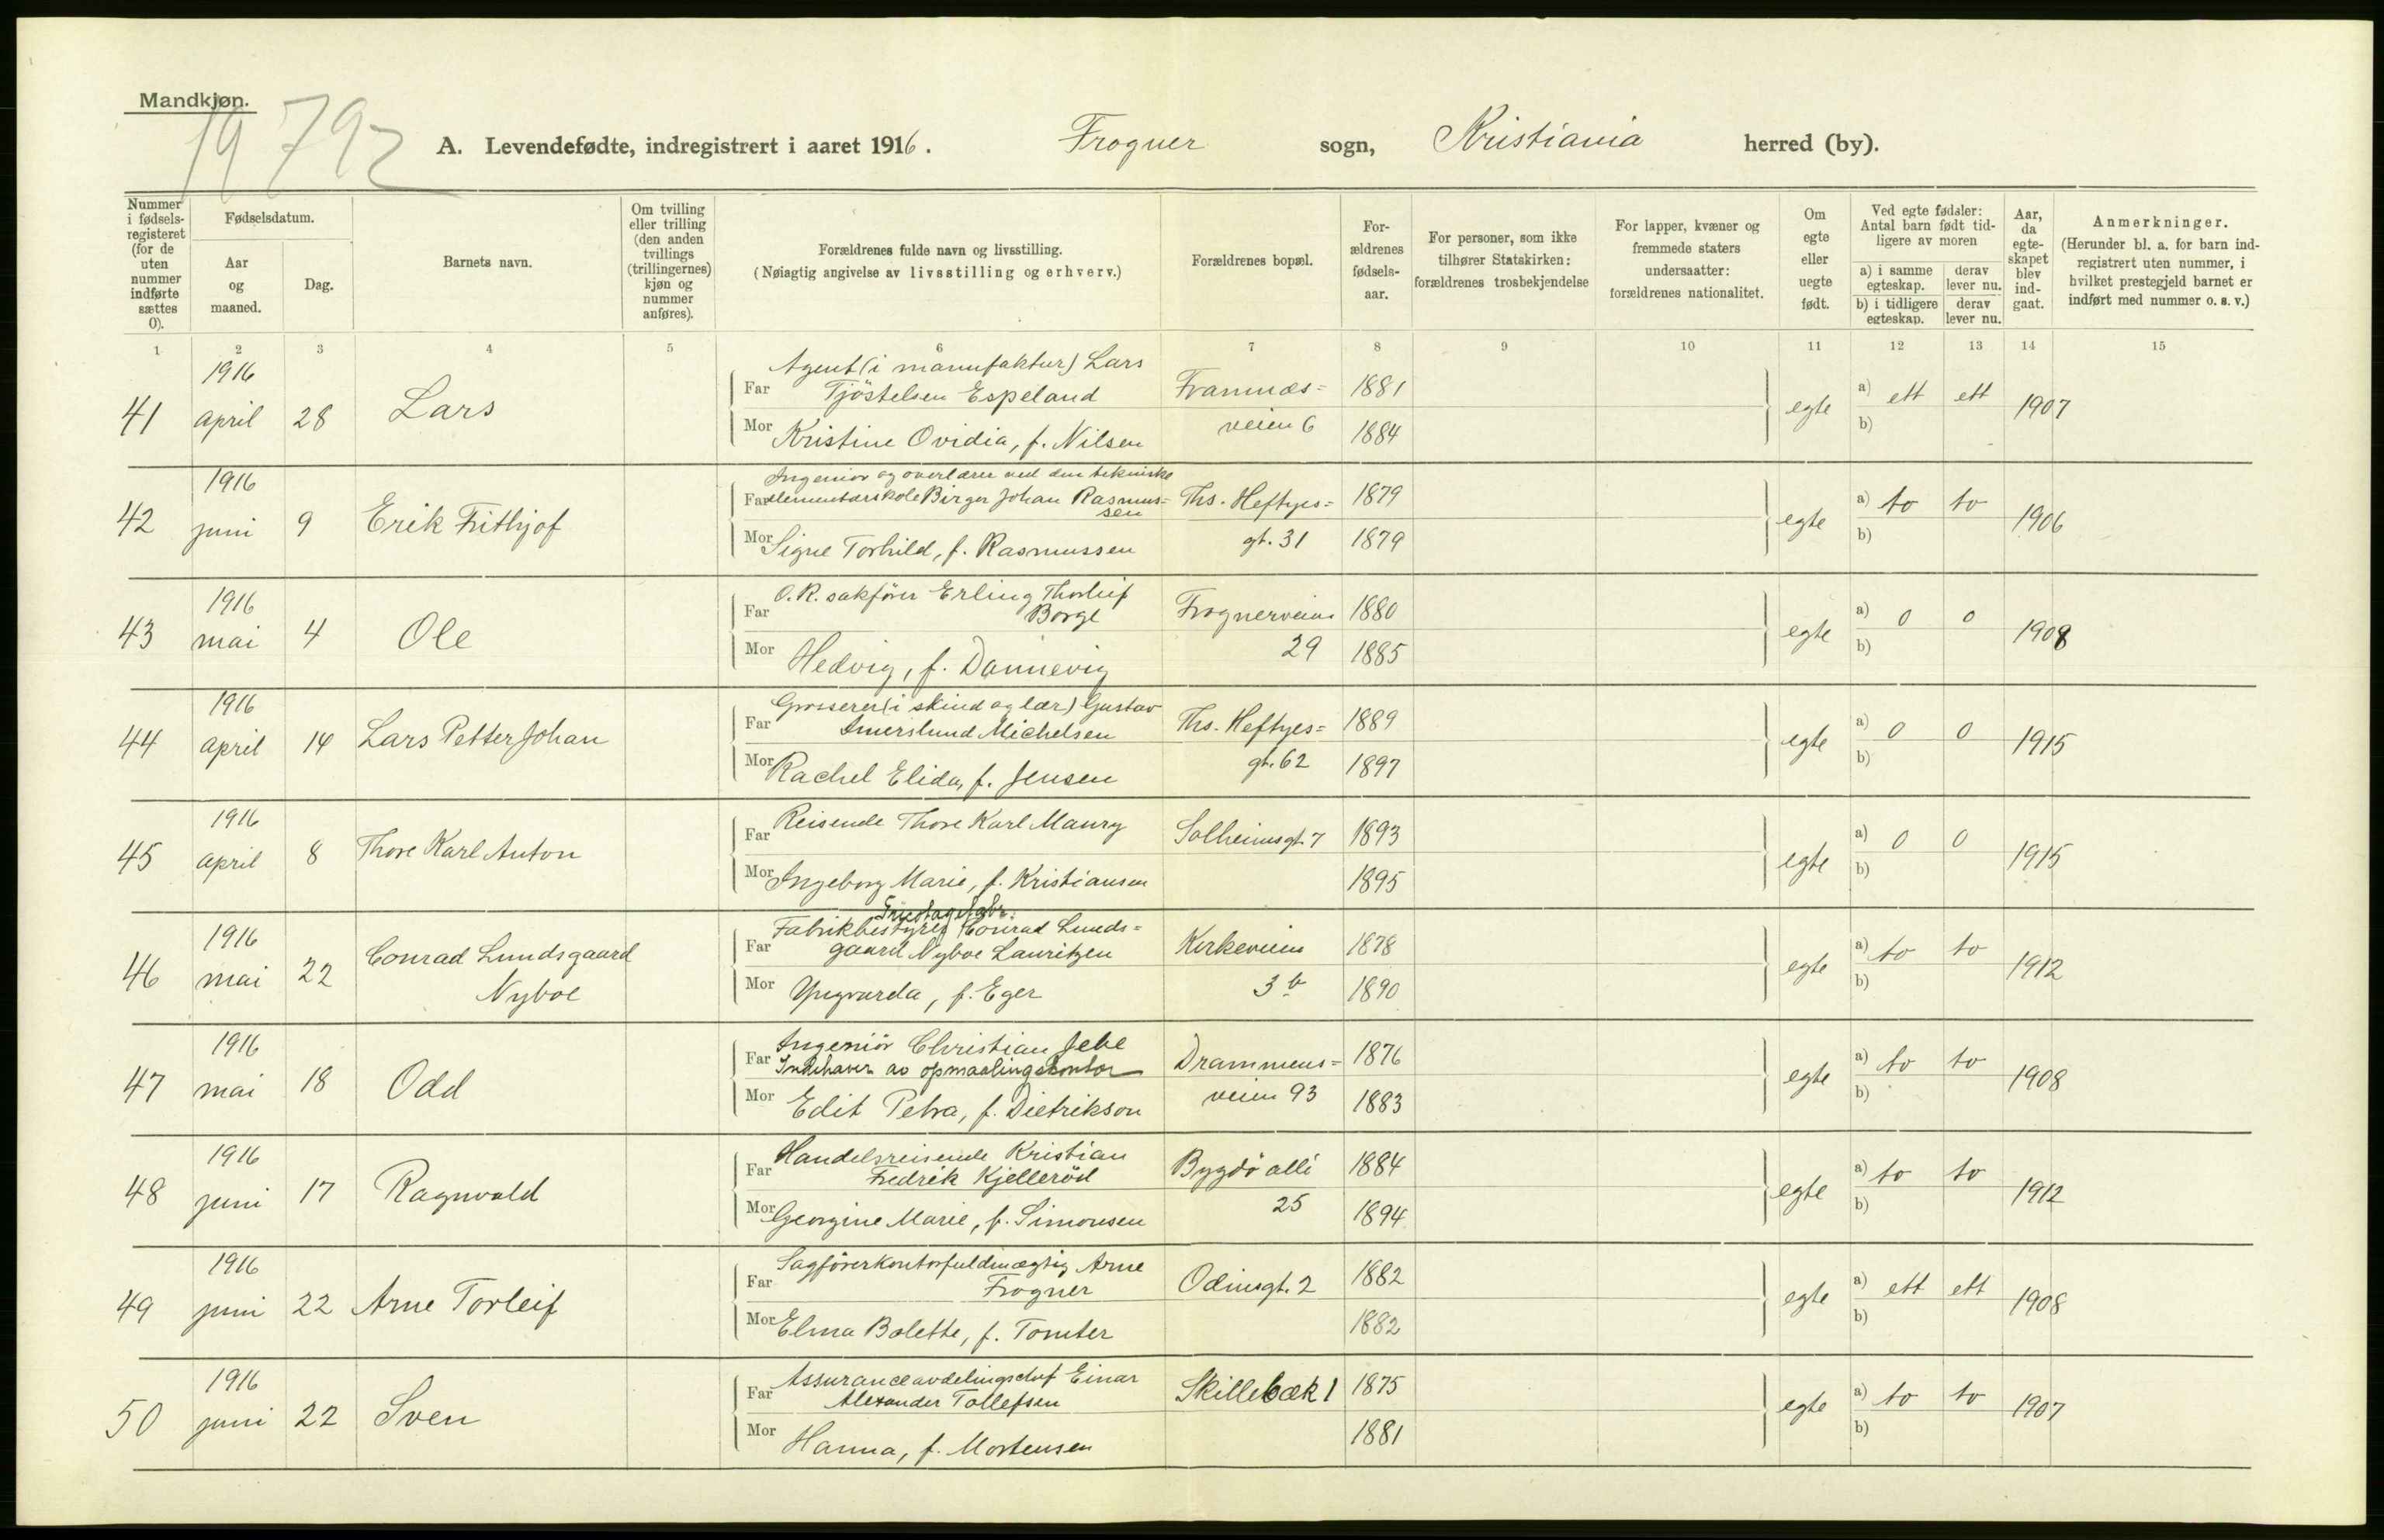 Mandkjøn.
19 792
A. Levendefødte, indregistrert i aaret 1916. Frogner sogn, Kristiania herred (by).
Nummer i fødsels-registeret (for de uten nummer indførte sættes 0).
Fødselsdatum.
Aar og maaned.
Dag.
Barnets navn.
Om tvilling eller trilling (den anden tvillings (trillingernes) kjøn og nummer anføres).
Forældrenes fulde navn og livsstilling.
(Nøiagtig angivelse av livsstilling og erhverv.)
Forældrenes bopæl.
For-ældrenes fødsels-aar.
For personer, som ikke tilhører Statskirken: forældrenes trosbekjendelse
For lapper, kvæner og fremmede staters undersaatter: forældrenes nationalitet.
Om egte eller uegte født.
Ved egte fødsler: Antal barn født tid-ligere av moren
a) i samme egteskap.
derav lever nu.
b) i tidligere egteskap.
derav lever nu.
Aar, da egte-skapet blev ind-gaat.
Anmerkninger.
(Herunder bl. a. for barn ind-registrert uten nummer, i hvilket prestegjeld barnet er indført med nummer o. s. v.)
1 2 3 4 5 6 7 8 9 10 11 12 13 14 15
1916 Agent (i manufaktur) Lars
41 april 28 Lars Far Tjöstelsen Espeland Framnæs= 1881 egte a) ett ett 1907
Mor Kristine Ovidia, f. Nilsen veien 6 1884 b)
1916 Ingeniör og overlærer ved den tekniske
42 juni 9 Erik Frithjof Far elementærskole Birger Johan Rasmus= Ths. Heftyes= 1879 egte a) to to 1906
sen
Mor Signe Torhild, f. Rasmussen gt. 31 1879 b)
1916 O.R. sakförer Erling Thorleif
43 mai 4 Ole Far Borge Frognerveien 1880 egte a) 0 0 1908
Mor Hedvig, f. Dannevig 29 1885 b)
1916 Grosserer (i skind og lær) Gustav
44 april 14 Lars Petter Johan Far Imerslund Michelsen Ths. Heftyes= 1889 egte a) 0 0 1915
Mor Rachel Elida, f. Jensen gt. 62 1897 b)
1916 Reisende Thore Karl Maury
45 april 8 Thore Karl Anton Far Solheimsgt. 7 1893 egte a) 0 0 1915
Mor Ingeborg Marie, f. Kristiansen 1895 b)
Tricotagefabr.
1916 Fabrikbestyrer Conrad Lunds=
46 mai 22 Conrad Lundsgaard Far gaard Nyboe Lauritzen Kirkeveien 1878 egte a) to to 1912
Nyboe Mor Yngvarda, f. Eger 3 b 1890 b)
1916 Ingeniör Christian Jebe
47 mai 18 Odd Far Indehaver av opmaalingskontor Drammens= 1876 egte a) to to 1908
Mor Edit Petra, f. Dietrikson veien 93 1883 b)
1916 Handelsreisende Kristian
48 juni 17 Ragnvald Far Fredrik Kjelleröd Bygdö allé 1884 egte a) to to 1912
Mor Georgine Marie, f. Simonsen 25 1894 b)
1916 Sagförerkontorfuldmægtig Arne
49 juni 22 Arne Torleif Far Frogner Odinsgt. 2 1882 egte a) ett ett 1908
Mor Elma Bolette, f. Tomter 1882 b)
1916 Assuranceavdelingschef Einar
50 juni 22 Sven Far Alexander Tollefsen Skillebæk 1 1875 egte a) to to 1907
Mor Hanna, f. Mortensen 1881 b)